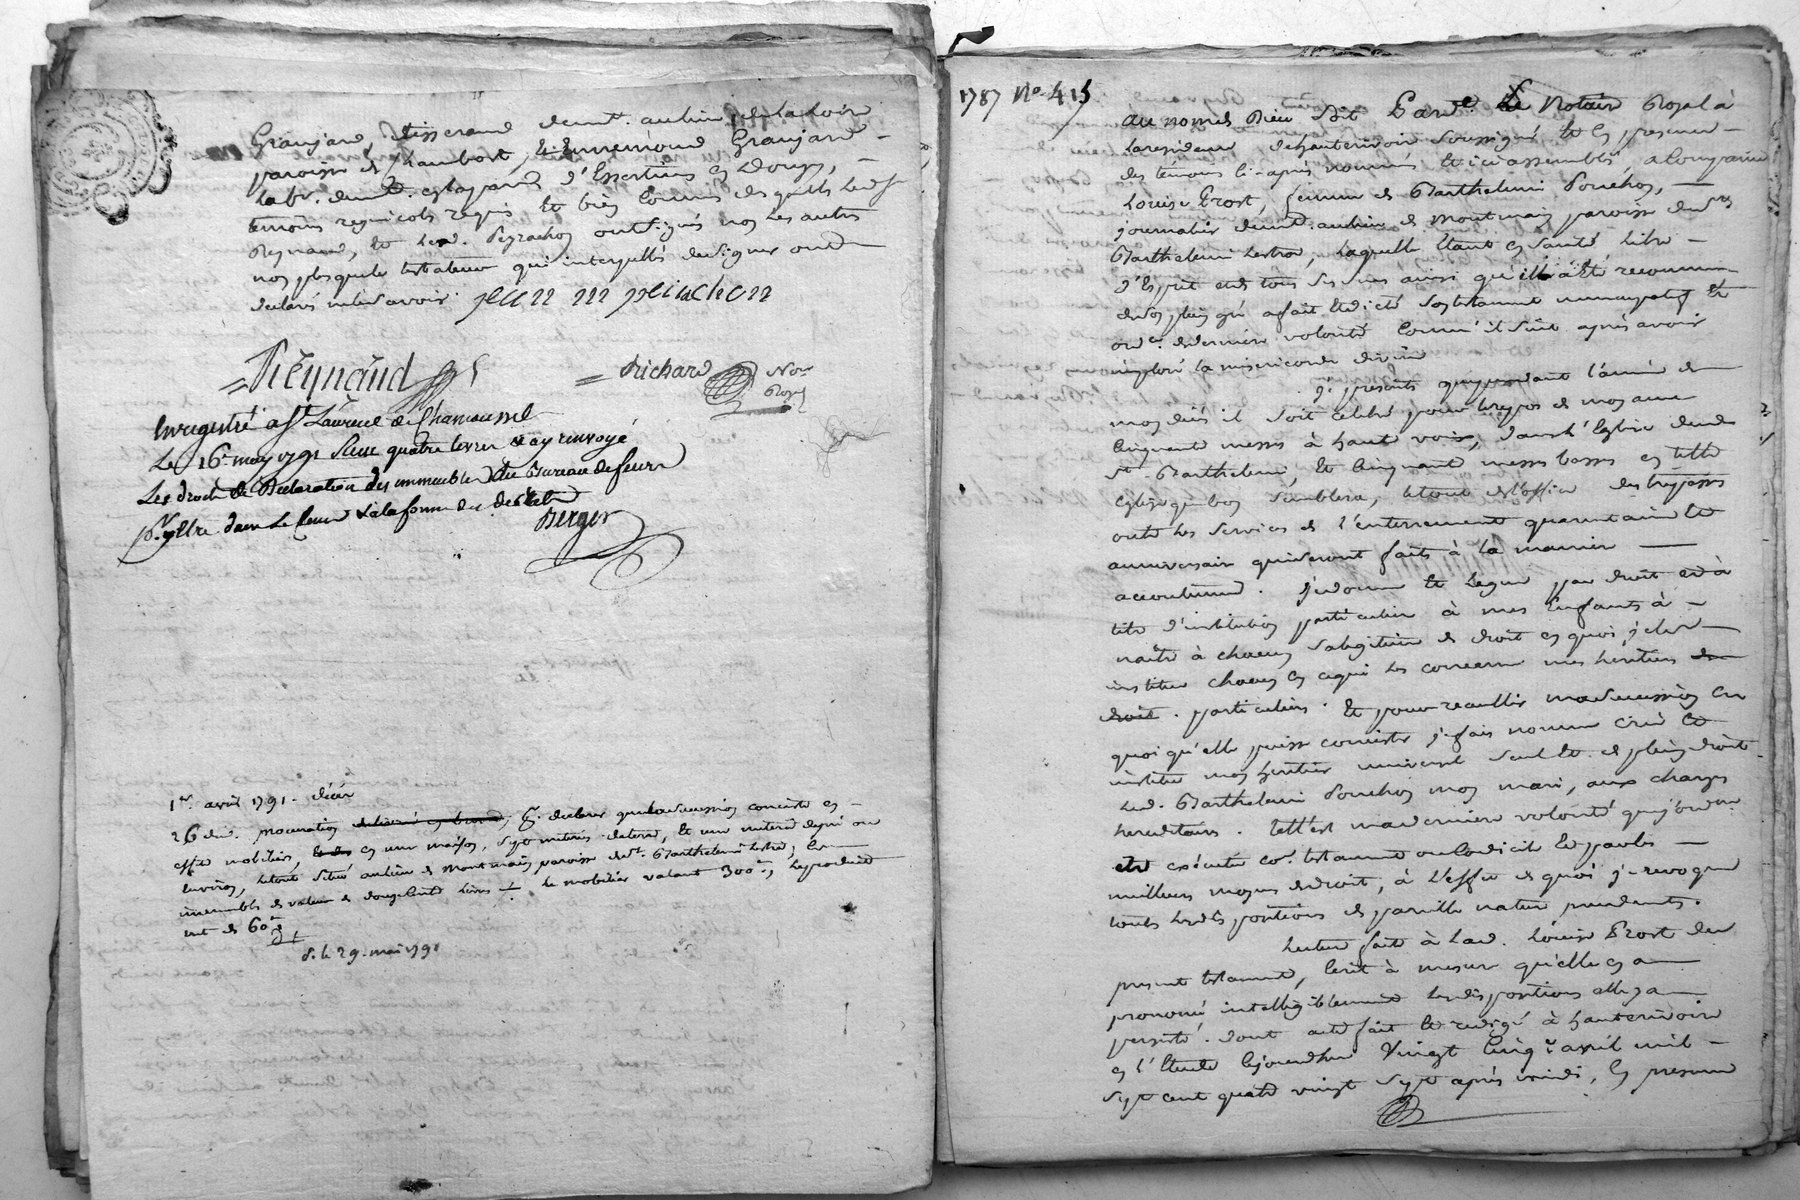 Granjard tisserand demt. au lieu de la Loire
paroisse de Chambost, & Ennemond Granjard
labr. demt. en la par. d'Essertines en Donzy,
temoins regnicols requis et bien connus desquels led. Sr
Reynaud, et led. Peyrachon ont signés non les autres
non plus que le testateur qui interpellés de signer ont
declaré ne le savoir. jean peirachon
Reynaud
Richard Nore
Royal
Enregistré a St Laurent de Chamousset
Le 16 may 1791 Reçu quatre livres & ay renvoyé
Les droits de Declaration des immeubles au Bureau de feurs
pr. y Etre dans Le Cours & a la forme des decrets
Berger
1er. avril 1791. décés
26 dud. procuration pr. declarer que la succession consiste en
effets mobiliers, en une maison, sept meterés de terre, et un
environ, le tout situé au lieu de Montmain paroisse de St. Barthelemi Lestra, les
immeubles de valeur de douze cent livres le mobilier valant 300#, le produit
est de 60#
d. le 29. mai 1791
1787 No. 415
Au nom de Dieu soit Pard. Le Notaire Royal à
la residence de hauterivoire soussigné et en presence
des témoins ci-après nommés et ici assemblés, a comparu
Louise Prost, femme de Barthelemi Ponchon,
journalier demt. au lieu de Montmain paroisse de St
Barthelemi Lestra, laquelle étant en santé libre
d'Esprit et de tous ses sens ainsi qu'il a été reconnu
de son plein gré a fait et dicté son testament nuncupatif et
ordce. de derniere volonté comme il suit après avoir
imploré la misericorde divine
Je, presents que, pendant l'année de
mon décés il soit celebré pour le repos de mon ame
cinquante messes à haute voix, dans l'Eglise dud.
St. Barthelemi, et cinquante messes basses en telle
Eglise que bon semblera, le tout de l'office des trépassés
outre les services de l'enterrement quarantaine et
anniversaire qui seront faits à la maniere
accoutumée. Je donne et legue par droit et à
titre d'institution particuliere à mes Enfants à
naître à chacun sa legitime de droit en quoi, je les
institue chacun en ce qui les concerne mes heritiers
particuliers. Et pour recueillir ma succession en
quoi qu'elle puisse consister je fais nomme crée et
institue mon heritier universel seul et de plein droit
led. Barthelemi Ponchon mon mari, aux charges
hereditaires. Telle est ma derniere volonté que j'ordonne
etre exécutée co. testament ou Codicile et par les
meilleurs moyens de droit, à l'effet de quoi je revoque
toutes les dispositions de pareille nature precedentes.
Lecture faite à lad. Louise Prost du
present testament, écrit à mesure qu'elle en a
prononcé intelligiblement les dispositions elle y a
persisté. dont acte fait et redigé à hauterivoire
en l'Etude cejourd'hui vingt cinq avril mil
sept cent quatre vingt sept après midi, en presence